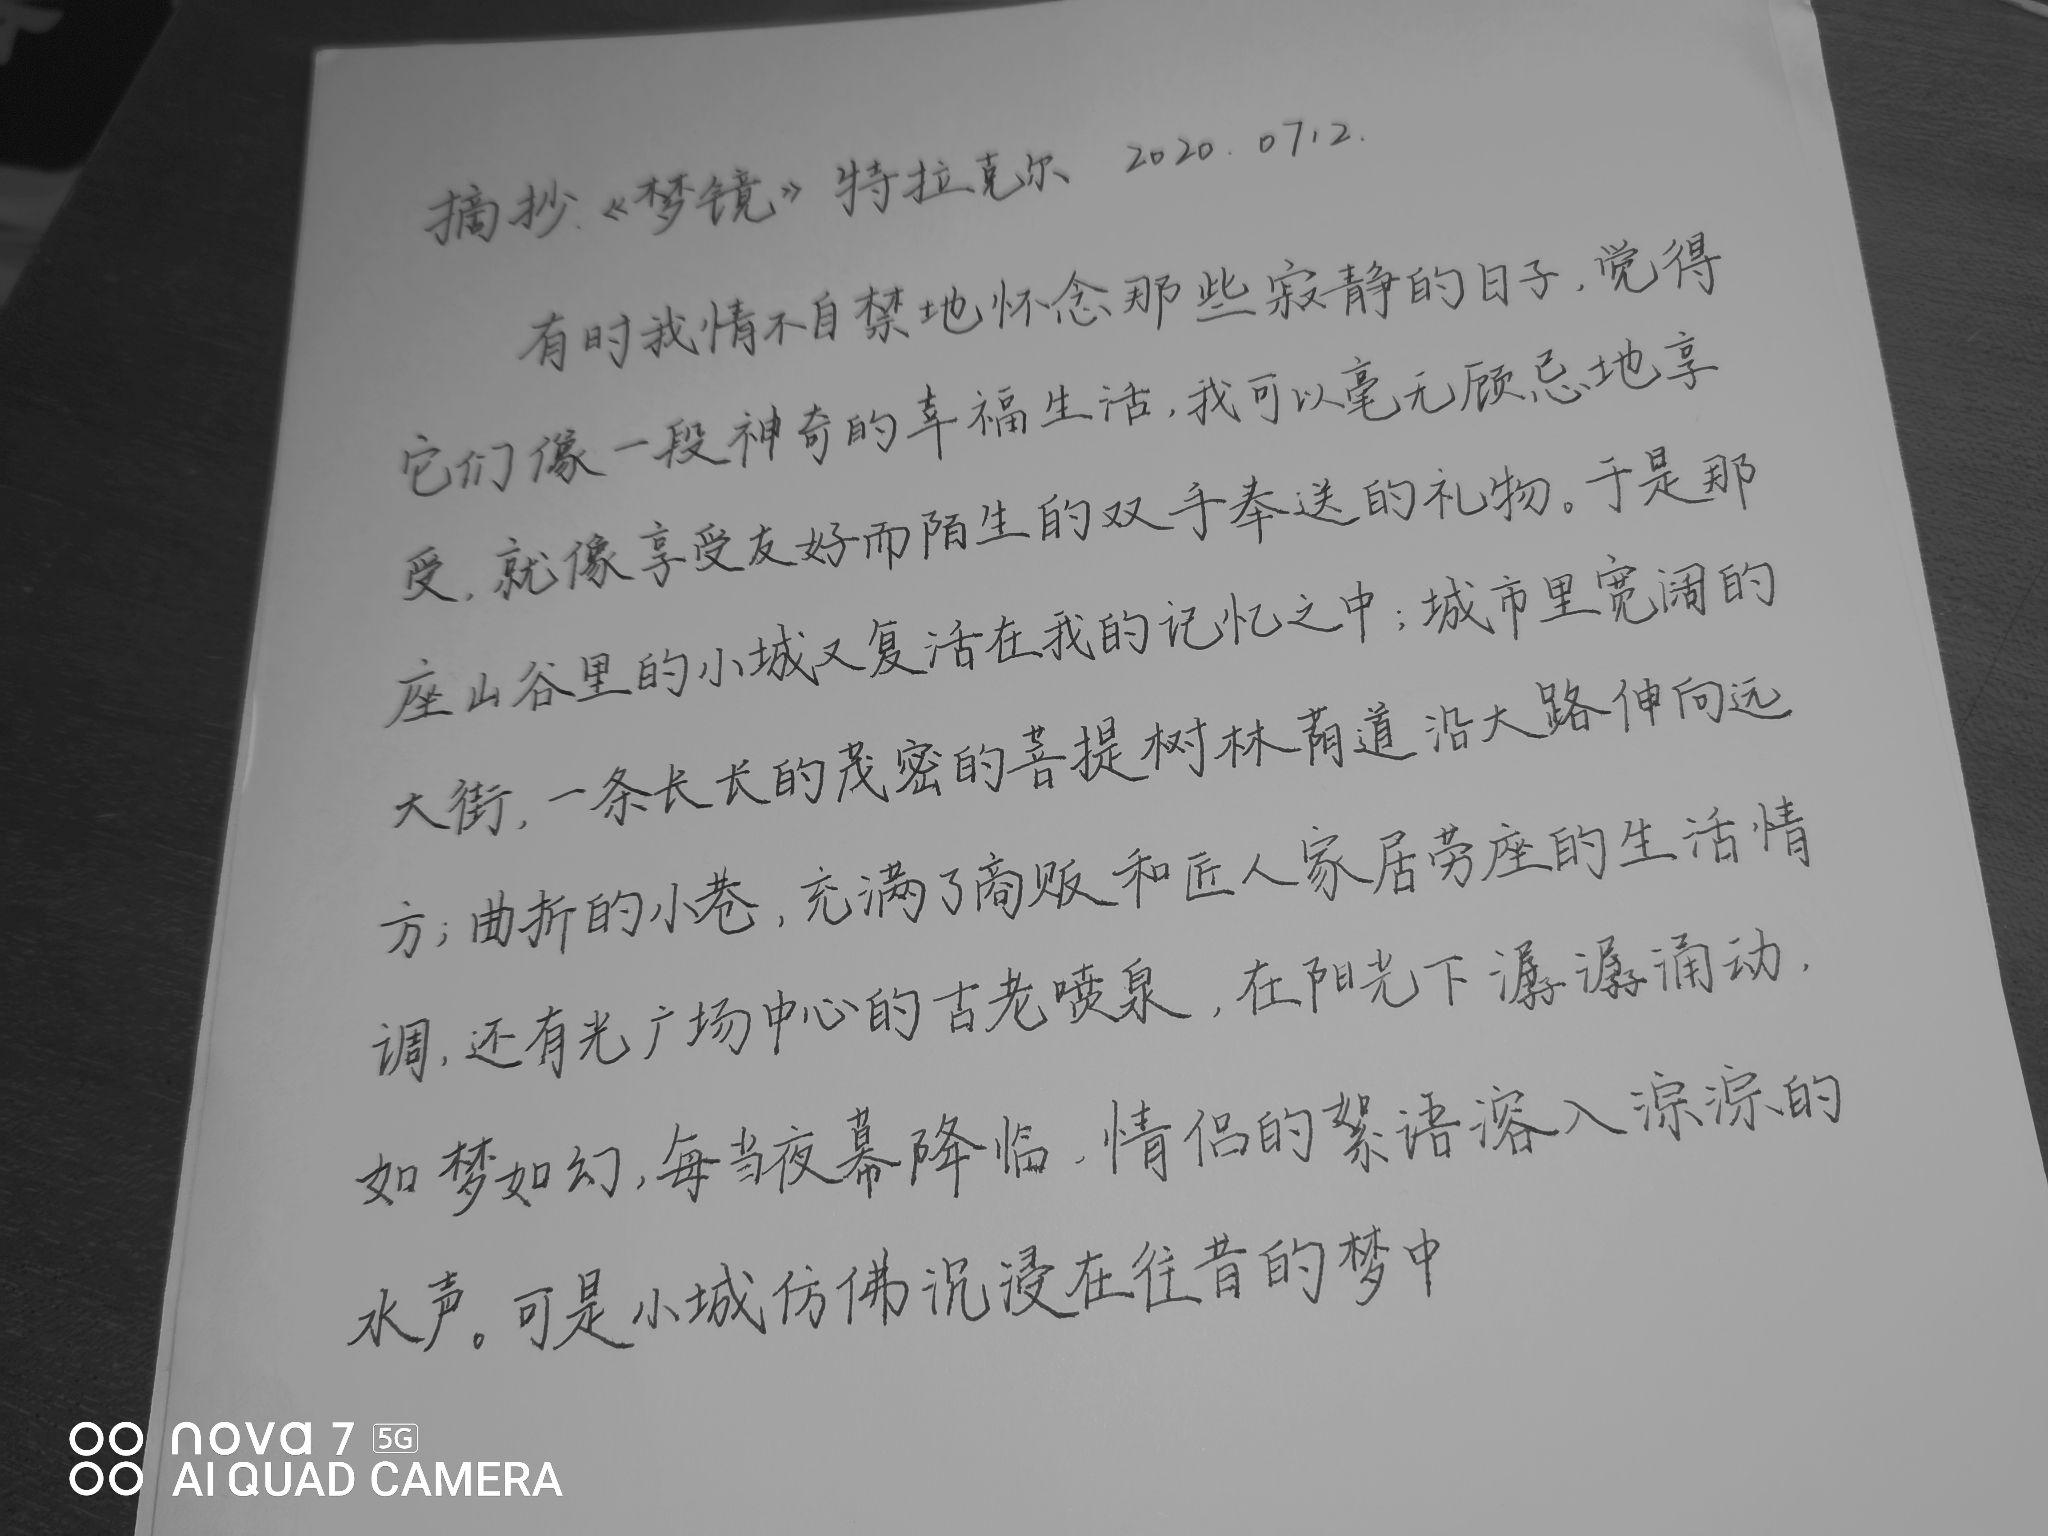 摘抄.《梦镜》特拉克尔 2020.0712.
有时我情不自禁地怀念那些寂静的日子,觉得
它们像一段神奇的幸福生活,我可以毫无顾忌地享
受,就像享受友好而陌生的双手奉送的礼物。于是那
座山谷里的小城又复活在我的记忆之中;城市里宽阔的
大街,一条长长的茂密的菩提树林荫道沿大路伸向远
方;曲折的小巷,充满了商贩和匠人家居劳座的生活情
调,还有光广场中心的古老喷泉,在阳光下潺潺涌动,
如梦如幻,每当夜幕降临,情侣的絮语溶入淙淙的
水声。可是小城仿佛沉浸在往昔的梦中
nova 7 5G
AI QUAD CAMERA